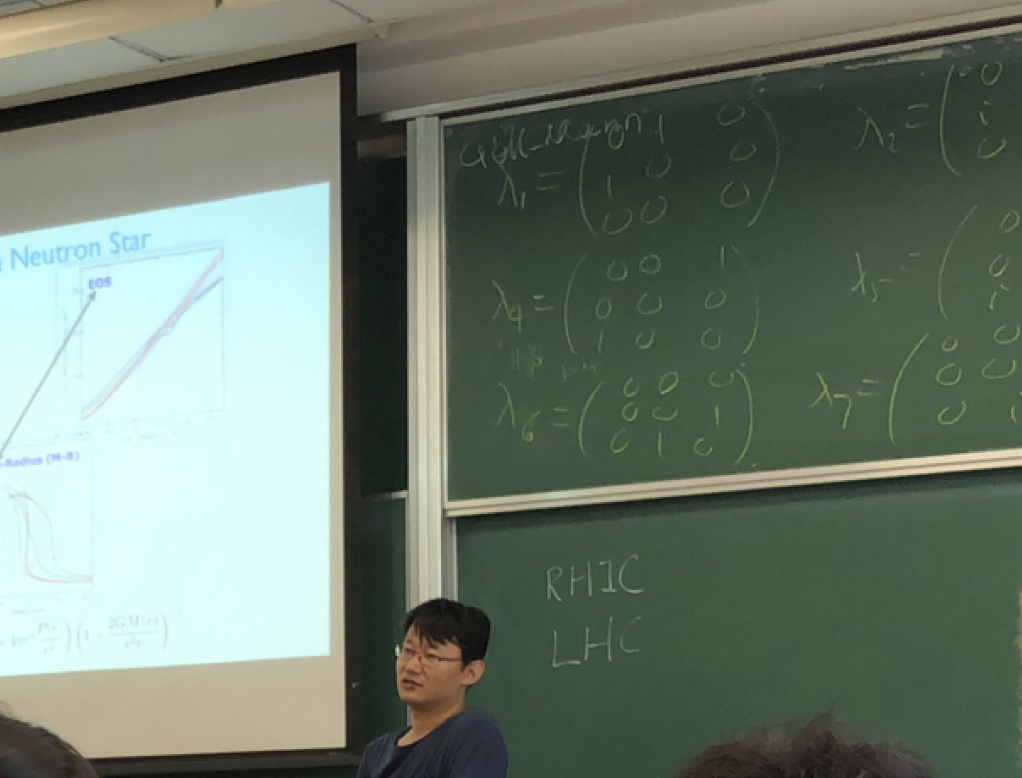 Neutron Star
EOS
-Radius (M-R)
(1 - 2GM(r)/c²r)
Gell-Mann
λ₁ = ( 0 1 0
1 0 0
0 0 0 )
λ₂ = ( 0
i
0
λ₄ = ( 0 0 1
0 0 0
1 0 0 )
λ₅ = ( 0
0
i
λ₆ = ( 0 0 0
0 0 1
0 1 0 )
λ₇ = ( 0 0
0 0
0 i
RHIC
LHC